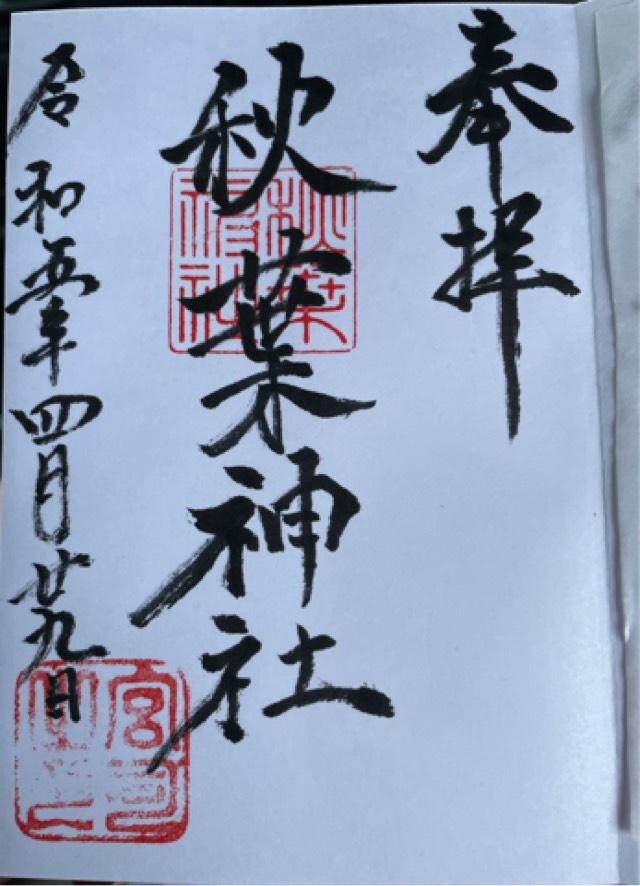 奉拝
秋葉神社
秋葉神社
令和五年四月廿九日
宮司